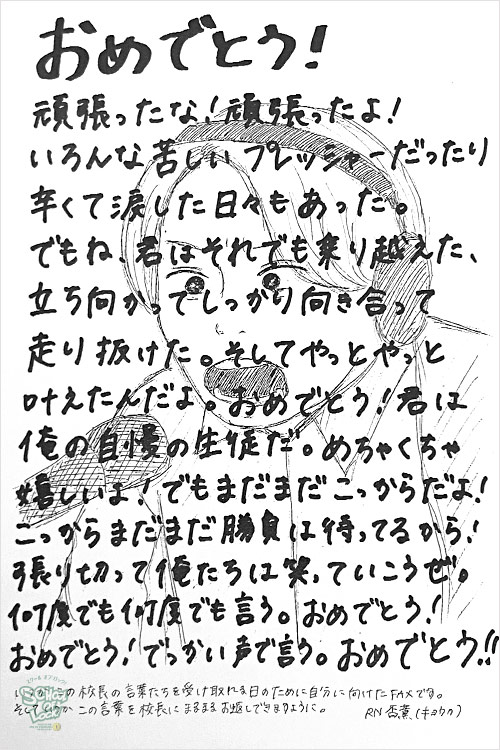 おめでとう!
頑張ったな!頑張ったよ!
いろんな苦しいプレッシャーだったり
辛くて涙した日々もあった。
でもね、君はそれでも乗り越えた、
立ち向かってしっかり向き合って
走り抜けた。そしてやっとやっと
叶えたんだよ。おめでとう!君は
俺の自慢の生徒だ。めちゃくちゃ
嬉しいよ!でもまだまだこっからだよ!
こっからまだまだ勝負は待ってるから!
張り切って俺たちは笑っていこうぜ。
何度でも何度でも言う。おめでとう!
おめでとう!でっかい声で言う。おめでとう!!
いつかこの校長の言葉たちを受け取れる日のために自分に向けたFAXです。
そしていつかこの言葉を校長にまるまるお返しできますように。 RN 杏薫(キョウカ)